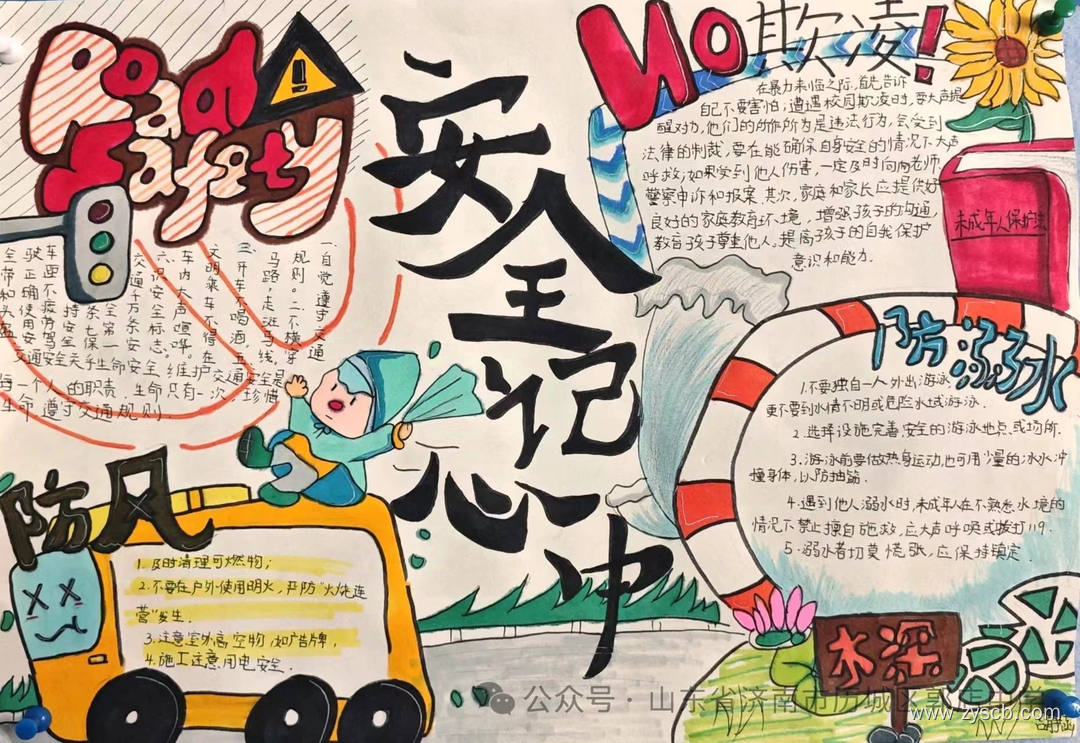 Road
Safety
安全记心中
NO欺凌!
在暴力来临之际,首先告诉
自己不要害怕;遭遇校园欺凌时,要大声提
醒对方,他们的所作所为是违法行为,会受到
法律的制裁,要在能确保自身安全的情况下大声
呼救;如果受到他人伤害,一定及时向老师、
警察申诉和报案.其次,家庭和家长应提供好
良好的家庭教育环境,增强孩子的沟通,
教育孩子尊重他人,提高孩子的自我保护
意识和能力.
未成年人保护法
一自觉遵守交通
规则。二不横穿
马路,走斑马线,
三、开车不喝酒.五、
文明乘车不得在
车内大声喧哗。
六、识安全标志。
交通安全关乎生命安全,维护交通安全是
每一个人的职责.生命只有一次,珍惜
生命 遵守交通规则.
防溺水
1.不要独自一人外出游泳
更不要到水情不明或危险水域游泳.
2.选择设施完善,安全的游泳地点或场所.
3.游泳前要做热身运动,也可用少量的冰水冲
撞身体,以防抽筋.
4.遇到他人溺水时,未成年人在不熟悉水境的
情况下禁止擅自施救,应大声呼唤或拨打119.
5.溺水者切莫慌张,应保持镇定
防风
1.及时清理可燃物;
2.不要在户外使用明火,严防"火烧连
营"发生.
3.注意室外高空物,如广告牌,
4.施工注意用电安全.
水深
公众号 · 山东省济南市历城区郭店中学
www.zyscb.com